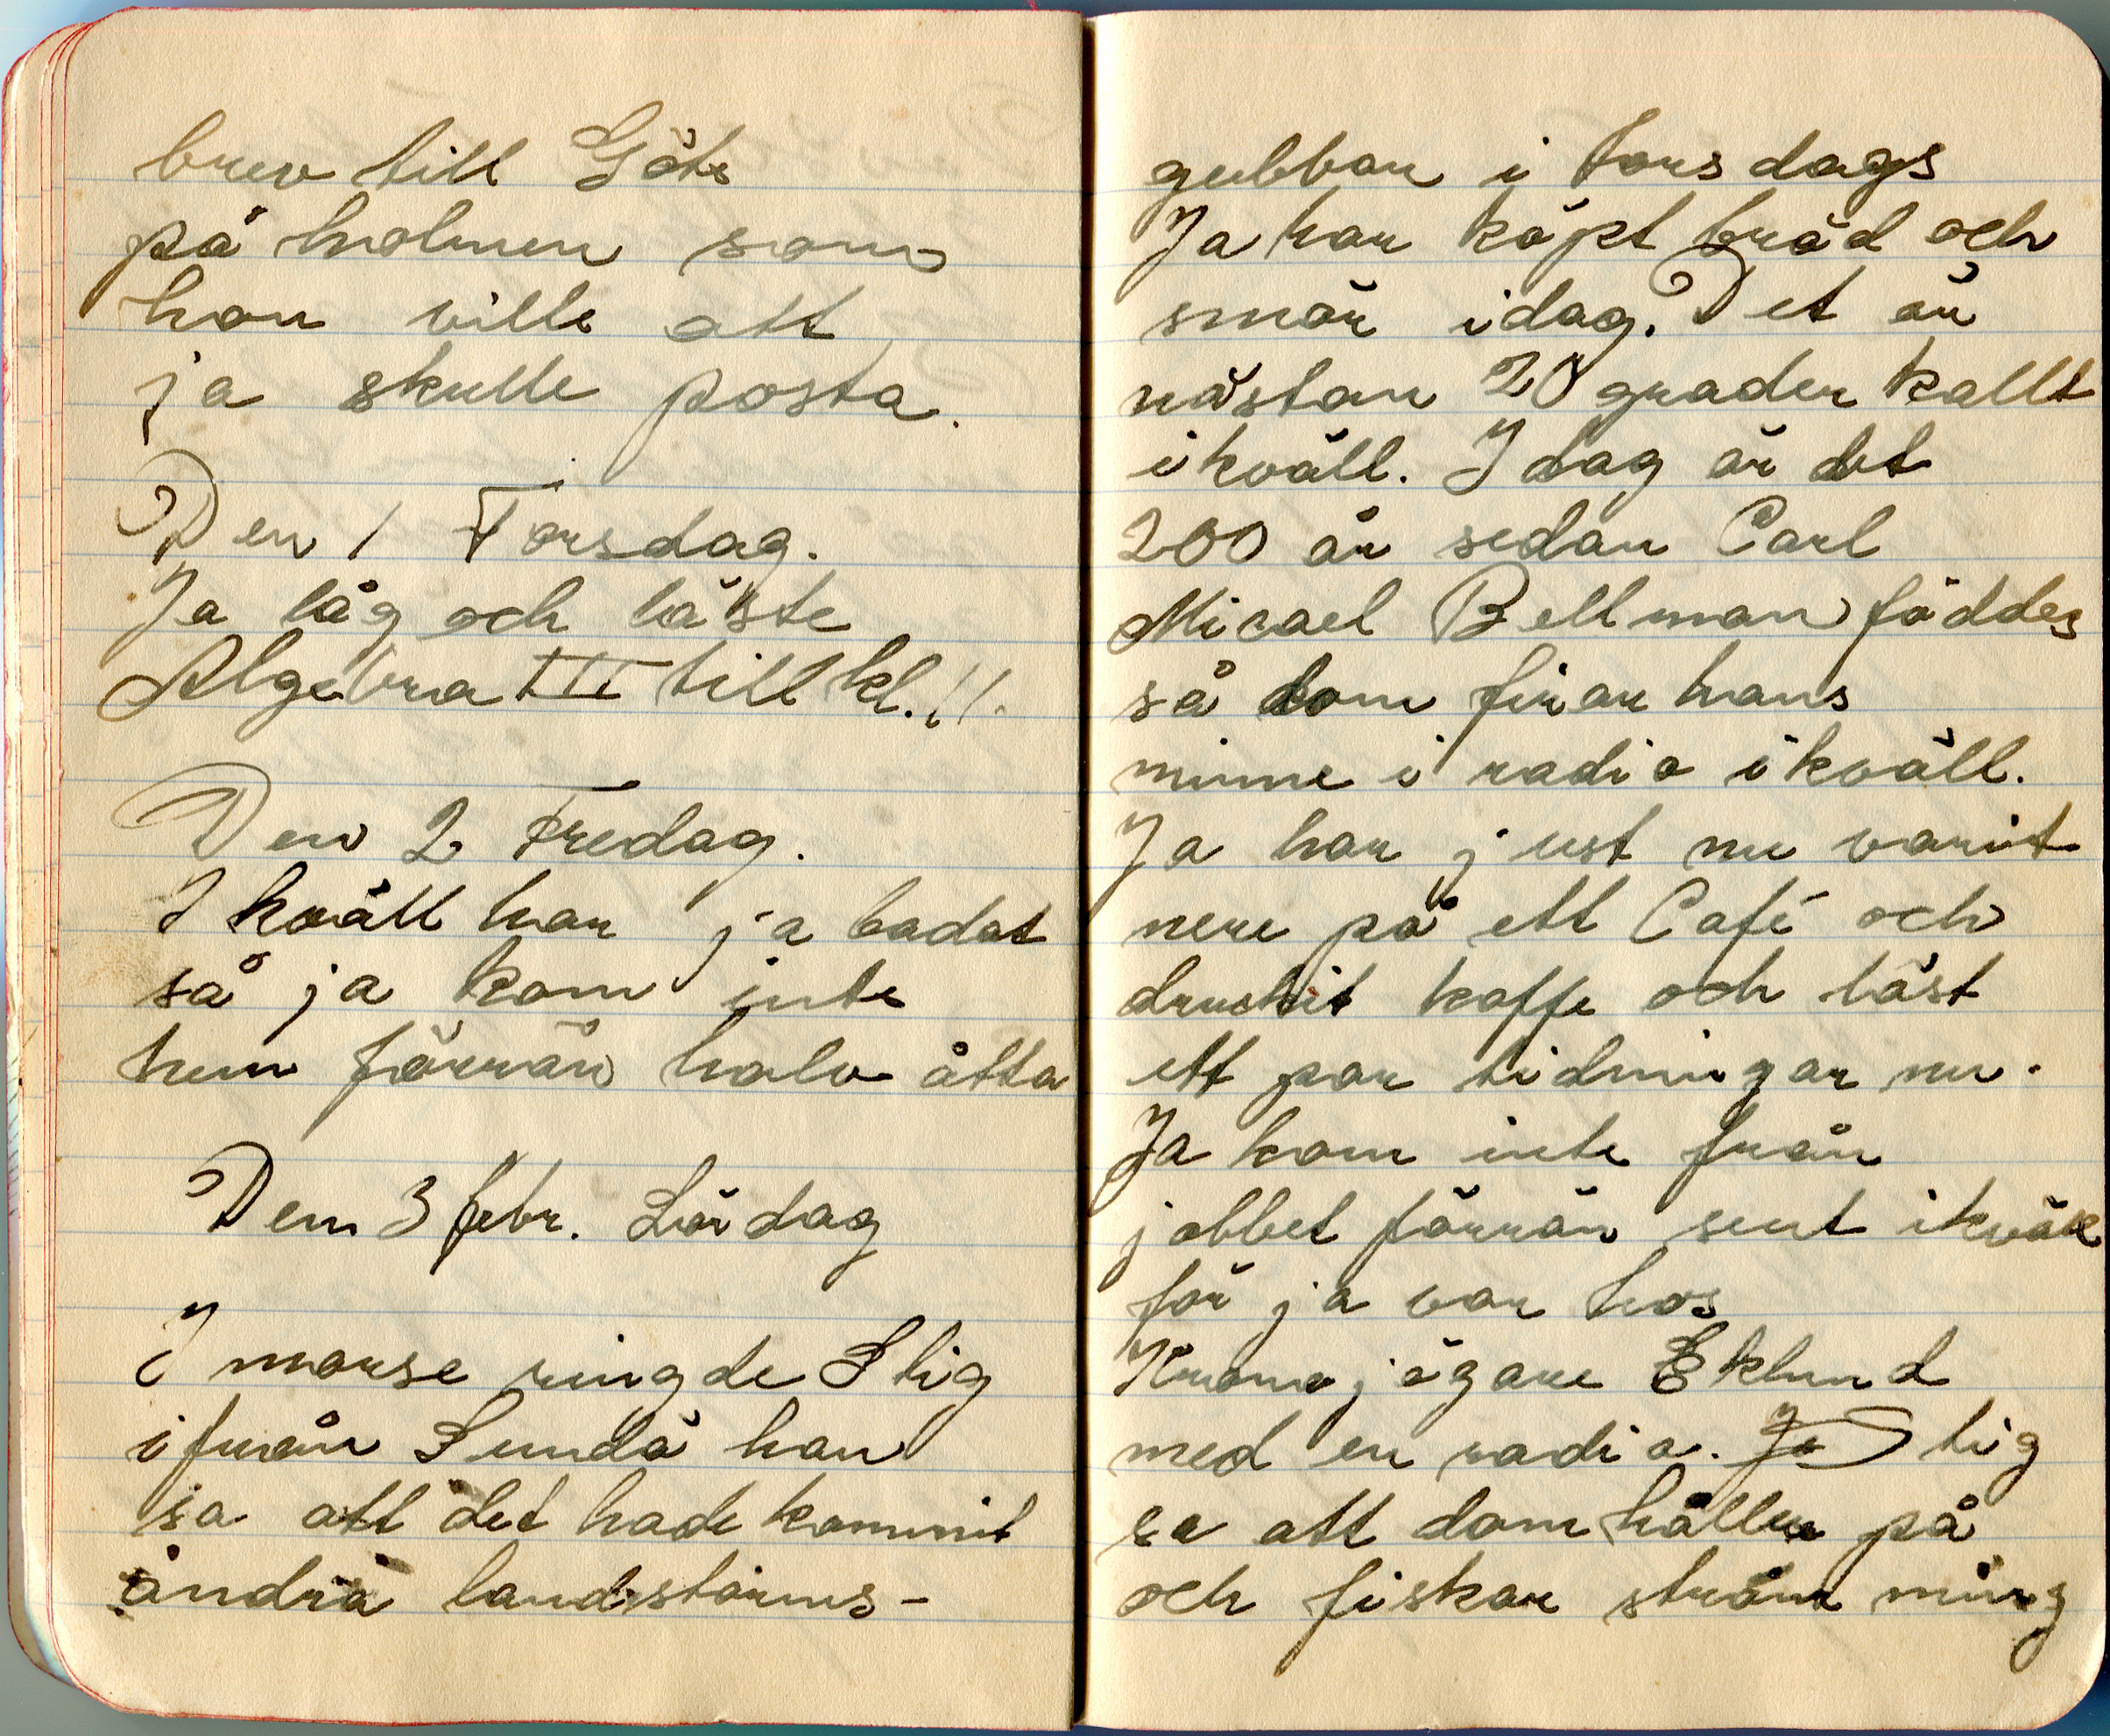 brev till Göte
på holmen som
hon ville att
ja skulle posta.
Den 1 Torsdag.
Ja låg och läste
Algebra III till kl. 11.
Den 2 Fredag.
I kväll har ja badat
så ja kom inte
hem förrän halv åtta
Den 3 febr. Lördag
I morse ringde Stig
ifrån Sundö han
sa att det hade kommit
andra landstorms-
gubbar i torsdags
Ja har köpt bröd och
smör idag. Det är
nästan 20 grader kallt
ikväll. I dag är det
200 år sedan Carl
Micael Bellman föddes
så dom firar hans
minne i radio ikväll.
Ja har just nu varit
nere på ett Café och
druckit kaffe och läst
ett par tidningar nu.
Ja kom inte från
jobbet förrän sent ikväll
för ja var hos
Kronojägare Eklund
med en radio. Ja Stig
sa att dom håller på
och fiskar strömming